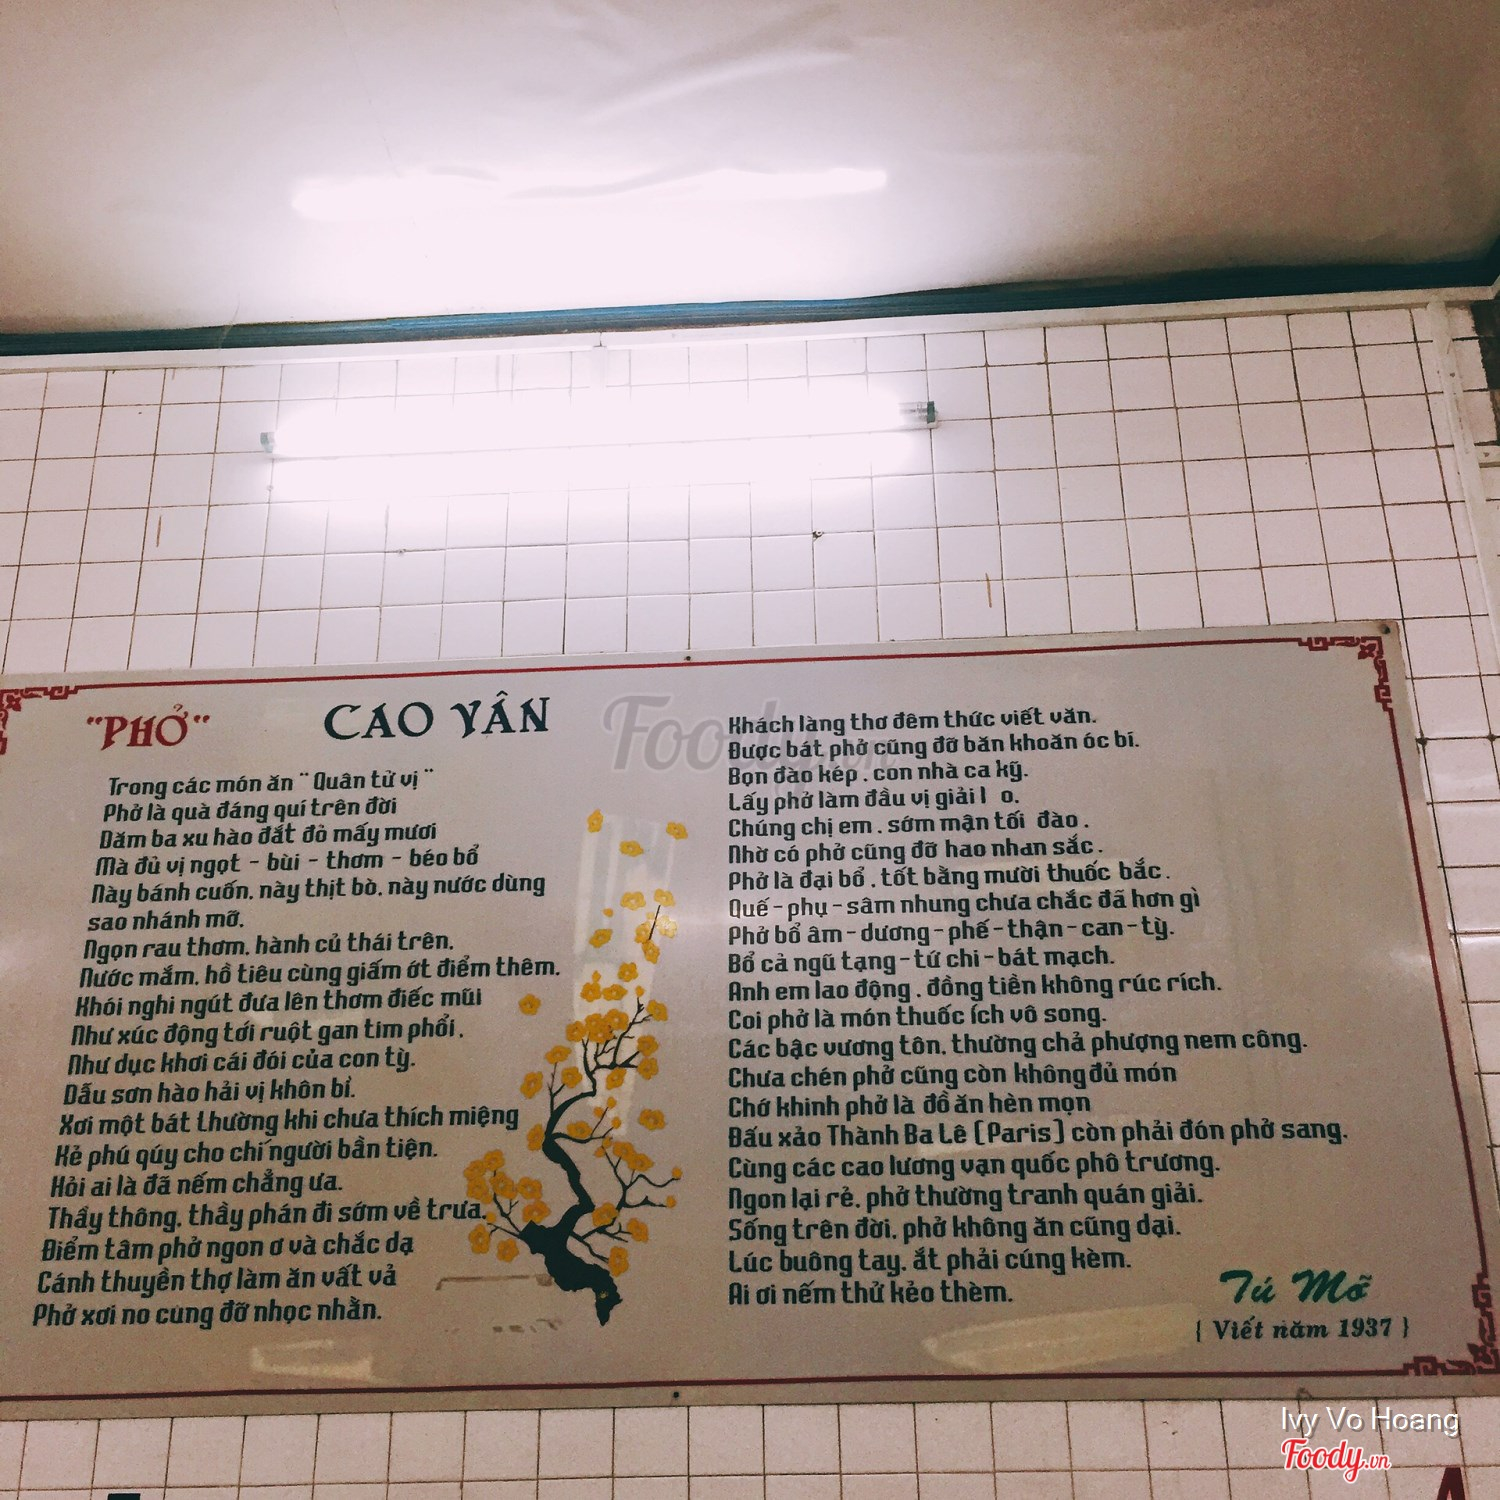 "PHỞ"
CAO VÂN
Trong các món ăn "Quân tử vị"
Phở là quà đáng quí trên đời
Dăm ba xu hào đắt đỏ mấy mươi
Mà đủ vị ngọt - bùi - thơm - béo bổ
Này bánh cuốn, này thịt bò, này nước dùng
sao nhánh mỡ.
Ngọn rau thơm, hành củ thái trên.
Nước mắm, hồ tiêu cùng giấm ớt điểm thêm.
Khói nghi ngút đưa lên thơm điếc mũi
Như xúc động tới ruột gan tim phổi.
Như dục khơi cái đói của con tỳ.
Dẫu sơn hào hải vị khôn bỉ.
Xơi một bát thường khi chưa thích miệng
Kẻ phú qúy cho chí người bần tiện.
Hỏi ai là đã nếm chẳng ưa.
Thầy thông, thầy phán đi sớm về trưa.
Điểm tâm phở ngon ơ và chắc dạ
Cánh thuyền thợ làm ăn vất vả
Phở xơi no cũng đỡ nhọc nhằn.
Khách làng thơ đêm thức viết văn.
Được bát phở cũng đỡ băn khoăn óc bí.
Bọn đào kép, con nhà ca kỹ.
Lấy phở làm đầu vị giải l o.
Chúng chị em, sớm mận tối đào.
Nhờ có phở cũng đỡ hao nhan sắc.
Phở là đại bổ, tốt bằng mười thuốc bắc.
Quế - phụ - sâm nhung chưa chắc đã hơn gì
Phở bổ âm - dương - phế - thận - can - tỳ.
Bổ cả ngũ tạng - tứ chi - bát mạch.
Anh em lao động, đồng tiền không rúc rích.
Coi phở là món thuốc ích vô song.
Các bậc vương tôn, thường chả phượng nem công.
Chưa chén phở cũng còn không đủ món
Chớ khinh phở là đồ ăn hèn mọn
Đấu xảo Thành Ba Lê (Paris) còn phải đón phở sang.
Cùng các cao lương vạn quốc phô trương.
Ngon lại rẻ, phở thường tranh quán giải.
Sống trên đời, phở không ăn cũng dại.
Lúc buông tay, ắt phải cúng kèm.
Ai ơi nếm thử kẻo thèm.
Tú Mỡ
{ Viết năm 1937 }
Foody.vn
Ivy Vo Hoang
Foody.vn